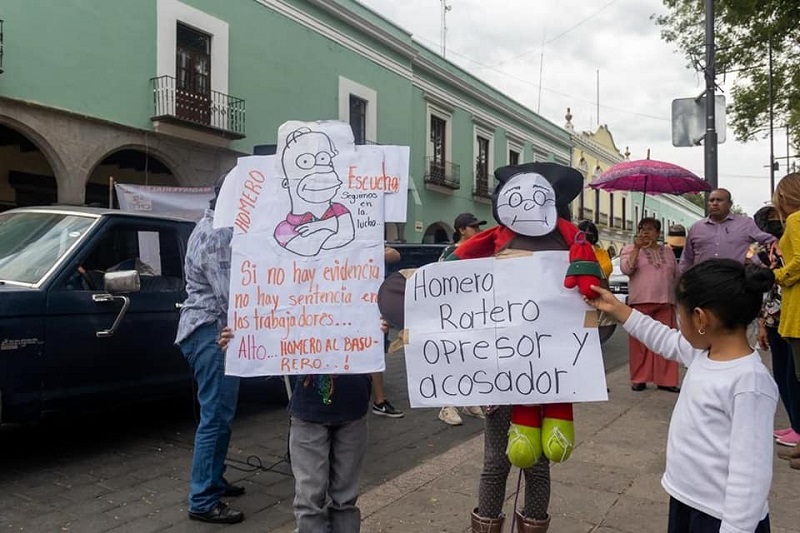 HOMERO
Escucha
Seguimos
en la
lucha...
Si no hay evidencia
no hay sentencia
las trabajadores...
Alto... HOMERO AL BASU-
RERO..!
Homero
Ratero
opresor y
acosador.